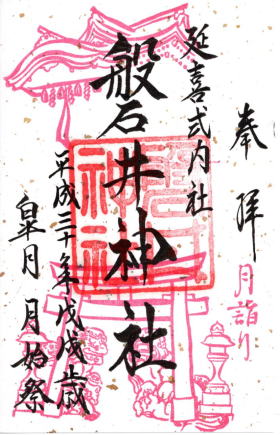 奉拝
月詣り
延喜式内社
般石井神社
平成三十年戊戌歳
皐月 月始祭